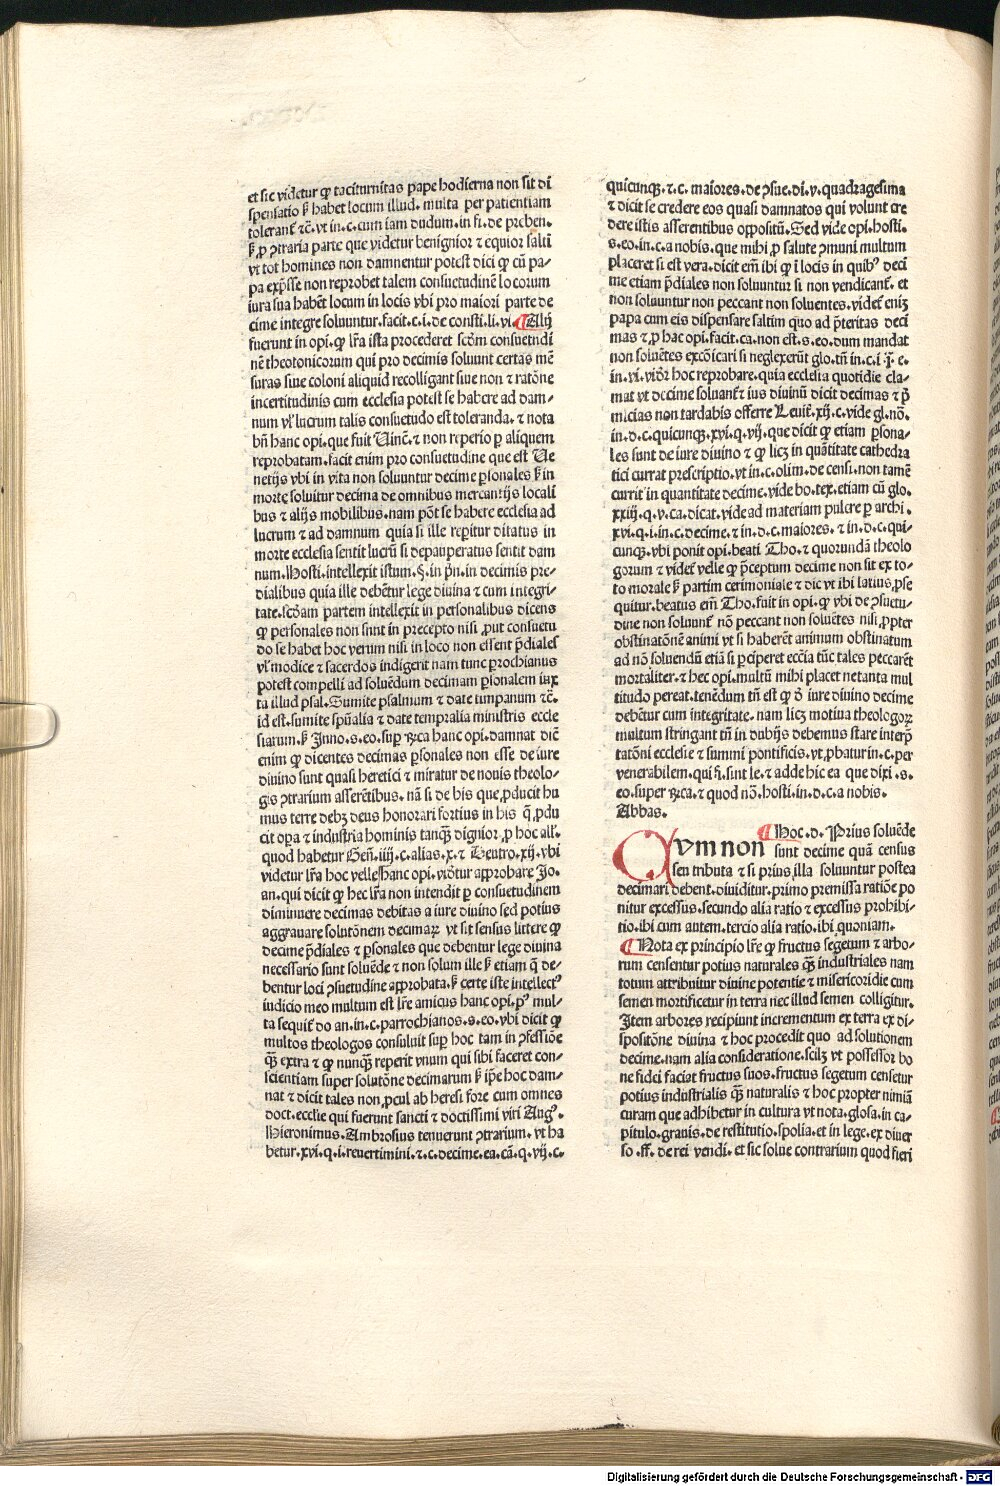 et sic videtur ꝙ taciturnitas pape hodierna non sit di
spensatio ꝑ habet locum illud. multa per patientiam
tolerant̉ ꝛc̄. vt in.c. cum iam dudum. in fi. de preben.
ꝑ ꝓ ꝯtraria parte que videtur benignior ⁊ equior saltī
vt tot homines non damnentur potest dici ꝙ cū pa/
pa exp̄sse non reprobet talem consuetudinē locorum
iura sua habēt locum in locis vbi pro maiori parte de
cime integre soluuntur. facit.c.i. de consti. li. vi. ¶ Alij
fuerunt in opi. ꝙ lr̄a ista procederet scd̄m consuetudi
nē theotonicorum qui pro decimis soluunt certas mē
suras siue coloni aliquid recolligant siue non ⁊ ratōne
incertitudinis cum ecclesia potest se habere ad dam/
num vl' lucrum talis consuetudo est toleranda. ⁊ nota
bn̄ hanc opi. que fuit Uinc̄. ⁊ non reperio ꝑ aliquem
reprobatam. facit enim pro consuetudine que est Ue
netijs vbi in vita non soluuntur decime ꝑsonales ꝑ in
morte soluitur decima de omnibus mercantijs locali
bus ⁊ alijs mobilibus. nam pōt se habere ecclesia ad
lucrum ⁊ ad damnum quia si ille repitur ditatus in
morte ecclesia sentit lucrū si depauperatus sentit dam
num. Hosti. intellexit istum.§. in pn̄. in decimis pre/
dialibus quia ille debētur lege diuina ⁊ cum integri/
tate. scd̄am partem intellexit in personalibus dicens
ꝙ personales non sunt in precepto nisi ꝓut consuetu
do se habet hoc verum nisi in loco non essent p̄diales
vl' modice ⁊ sacerdos indigeret nam tunc ꝑrochianus
potest compelli ad soluēdum decimam ꝑsonalem iux
ta illud psal. Sumite psalmum ⁊ date timpanum ꝛc̄.
id est. sumite spūalia ⁊ date tempralia ministris eccle
siarum. ꝑ Inno. s. eo. suꝑ ꝝca hanc opi. damnat dic̄
enim ꝙ dicentes decimas ꝑsonales non esse de iure
diuino sunt quasi heretici ⁊ miratur de nouis theolo/
gis ꝯtrarium asserētibus. nā si de his que ꝓducit hu
mus terre debꝫ deus honorari fortius in his q̄ ꝓdu
cit oꝑa ⁊ industria hominis tanqꝫ dignior. ꝓ hoc all'.
quod habetur Gen̄. iiij. c. alias. x. ⁊ Deutro. xij. vbi
videtur lr̄a hoc velle. hanc opi. vīdtur approbare Jo.
an. qui dicit ꝙ hec lr̄a non intendit ꝑ consuetudinem
diminuere decimas debitas a iure diuino sed potius
aggrauare solutōnem decimaꝝ vt sit sensus littere ꝙ
decime p̄diales ⁊ ꝑsonales que debentur lege diuina
necessario sunt soluēde ⁊ non solum ille ꝑ etiam q̄ de/
bentur loci ꝯsuetudine approbata. ꝑ certe iste intellectꝰ
iudicio meo multum est lr̄e amicus hanc opi. pꝰ mul/
ta sequit̉ do. an. in. c. parrochianos. s. eo. vbi dicit ꝙ
multos theologos consuluit suꝑ hoc tam in ꝯfessiōe
qꝫ extra ⁊ ꝙ nunqꝫ reperit vnum qui sibi faceret con/
scientiam super solutōne decimarum ꝑ ip̄e hoc dam/
nat ⁊ dicit tales non ꝓcul ab heresi fore cum omnes
doct. ecclie qui fuerunt sancti ⁊ doctissimi viri Augꝰ.
Hieronimus. Ambrosius tenuerunt ꝯtrarium. vt ha
betur. xvi. q. i. reuertimini. ⁊. c. decime. ea. cā. q. vij. c.
quicunqꝫ. ⁊. c. maiores. de ꝯsue. di. v. quadragesima
⁊ dicit se credere eos quasi damnatos qui volunt cre
dere istis asserentibus oppositū. Sed vide opi. hosti.
s. eo. in. c. a nobis. que mihi ꝓ salute ꝯmuni multum
placeret si est vera. dicit em̄ ibi ꝙ ī locis in quibꝰ deci
me etiam p̄diales non soluuntur si non vendicant̉. et
non soluuntur non peccant non soluentes. videt̉ enīꝫ
papa cum eis dispensare saltim quo ad p̄teritas deci
mas ⁊ ꝓ hac opi. facit. ca. non est. s. eo. dum mandat
non soluētes excōicari si neglexerūt glo. tn̄ in. c. i. §. e.
in. vi. vīdr̄ hoc reprobare. quia ecclesia quotidie cla/
mat vt decime soluant̉ ⁊ ius diuinū dicit decimas ⁊ p̄
micias non tardabis offerre Leuit̉. xij. c. vide gl. nō.
in. d. c. quicunqꝫ. xvi. q. vij. que dicit ꝙ etiam ꝑsona/
les sunt de iure diuino ⁊ ꝙ licꝫ in quātitate cathedra
tici currat prescriptio. vt in. c. olim. de censi. non tamē
currit in quantitate decime. vide bo. tex. etiam cū glo.
xxiij. q. v. ca. dicat. vide ad materiam pulcre ꝑ archi.
xvi. q. i. in. c. decime. ⁊ in. d. c. maiores. ⁊ in. d. c. qui/
cunqꝫ. vbi ponit opi. beati Tho. ⁊ quorundā theolo
gorum ⁊ videt̉ velle ꝙ p̄ceptum decime non sit ex to/
to morale ꝑ partim cerimoniale ⁊ dic vt ibi latius ꝓse
quitur. beatus em̄ Tho. fuit in opi. ꝙ vbi de ꝯsuetu/
dine non soluunt̉ nō peccant non soluētes nisi ꝓpter
obstinatōnē animi vt si haberēt animum obstinatum
ad nō soluendū etiā si ꝑciperet ecc̄ia tūc tales peccarēt
mortaliter. ⁊ hec opi. multū mihi placet ne tanta mul
titudo pereat. tenēdum tn̄ est ꝙ ō iure diuino decime
debētur cum integritate. nam licꝫ motiua theologoꝝ
multum stringant tn̄ in dubijs debemus stare interp̄
tatōni ecclesie ⁊ summi pontificis. vt ꝓbatur in. c. per
venerabilem. qui fi. sint le. ⁊ adde hic ea que dixi. s.
eo. super ꝝca. ⁊ quod nō. hosti. in. d. c. a nobis.
Abbas.
¶ Hoc. d. Prius soluēde
QVm non sunt decime quā census
seu tributa ⁊ si prius illa soluuntur postea
decimari debent. diuiditur. primo premissa ratiōe po
nitur excessus. secundo alia ratio ⁊ excessus prohibi/
tio. ibi cum autem. tercio alia ratio. ibi quoniam.
¶ Nota ex principio lr̄e ꝙ fructus segetum ⁊ arbo/
rum censentur potius naturales qꝫ industriales nam
totum attribuitur diuine potentie ⁊ misericordie cum
semen mortificetur in terra nec illud semen colligitur.
Item arbores recipiunt incrementum ex terra ex di/
spositōne diuina ⁊ hoc procedit quo ad solutionem
decime. nam alia consideratione. scilꝫ vt possessor bo
ne fidei faciat fructus suos. fructus segetum censetur
potius industrialis qꝫ naturalis ⁊ hoc propter nimiā
curam que adhibetur in cultura vt nota. glosa. in ca/
pitulo. grauis. de restitutio. spolia. et in lege. ex diuer
so. ff. de rei vendi. et sic solue contrarium quod fieri
Digitalisierung gefördert durch die Deutsche Forschungsgemeinschaft - DFG